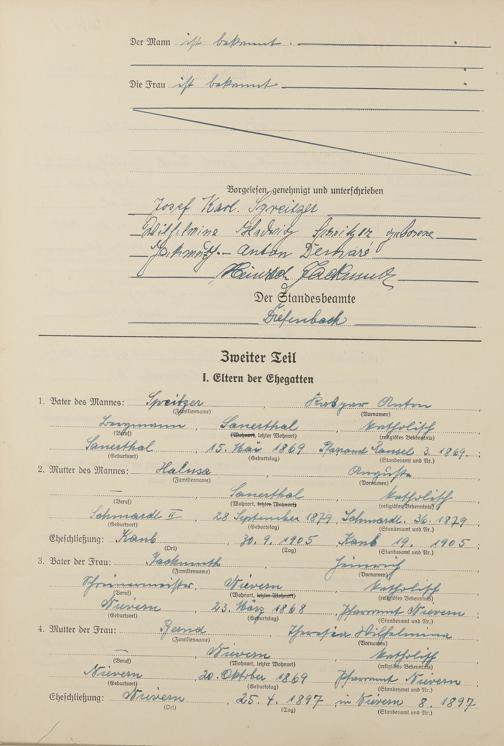 Der Mann ist bekannt.
Die Frau ist bekannt
Vorgelesen, genehmigt und unterschrieben
Josef Karl Spreitzer
Wilhelmine Hedwig Spreitzer geborene
Anton
Heinrich Jackmuth
Der Standesbeamte
Diefenbach
Zweiter Teil
I. Eltern der Ehegatten
1. Vater des Mannes: Spreitzer Kaspar Anton
(Familienname) (Vornamen)
Bergmann Sauerthal katholisch
(Beruf) (Wohnort, letzter Wohnort) (religiöses Bekenntnis)
Sauerthal 15. Mai 1869 Pfarramt 3. 1869.
(Geburtsort) (Geburtstag) (Standesamt und Nr.)
2. Mutter des Mannes: Auguste
(Familienname) (Vornamen)
— Sauerthal katholisch
(Beruf) (Wohnort, letzter Wohnort) (religiöses Bekenntnis)
II 28 September 1879 36. 1879
(Geburtsort) (Geburtstag) (Standesamt und Nr.)
Eheschließung: Kaub 30. 9. 1905 Kaub 19. 1905
(Ort) (Tag) (Standesamt und Nr.)
3. Vater der Frau: Jackmuth Heinrich
(Familienname) (Vornamen)
Schreinermeister Nievern katholisch
(Beruf) (Wohnort, letzter Wohnort) (religiöses Bekenntnis)
Nievern 23. März 1868 Pfarramt Nievern
(Geburtsort) (Geburtstag) (Standesamt und Nr.)
4. Mutter der Frau: Theresia Wilhelmina
(Familienname) (Vornamen)
— Nievern katholisch
(Beruf) (Wohnort, letzter Wohnort) (religiöses Bekenntnis)
Nievern 20. Oktober 1869 Pfarramt Nievern
(Geburtsort) (Geburtstag) (Standesamt und Nr.)
Eheschließung: Nievern 25. 4. 1897 in Nievern 8. 1897
(Ort) (Tag) (Standesamt und Nr.)